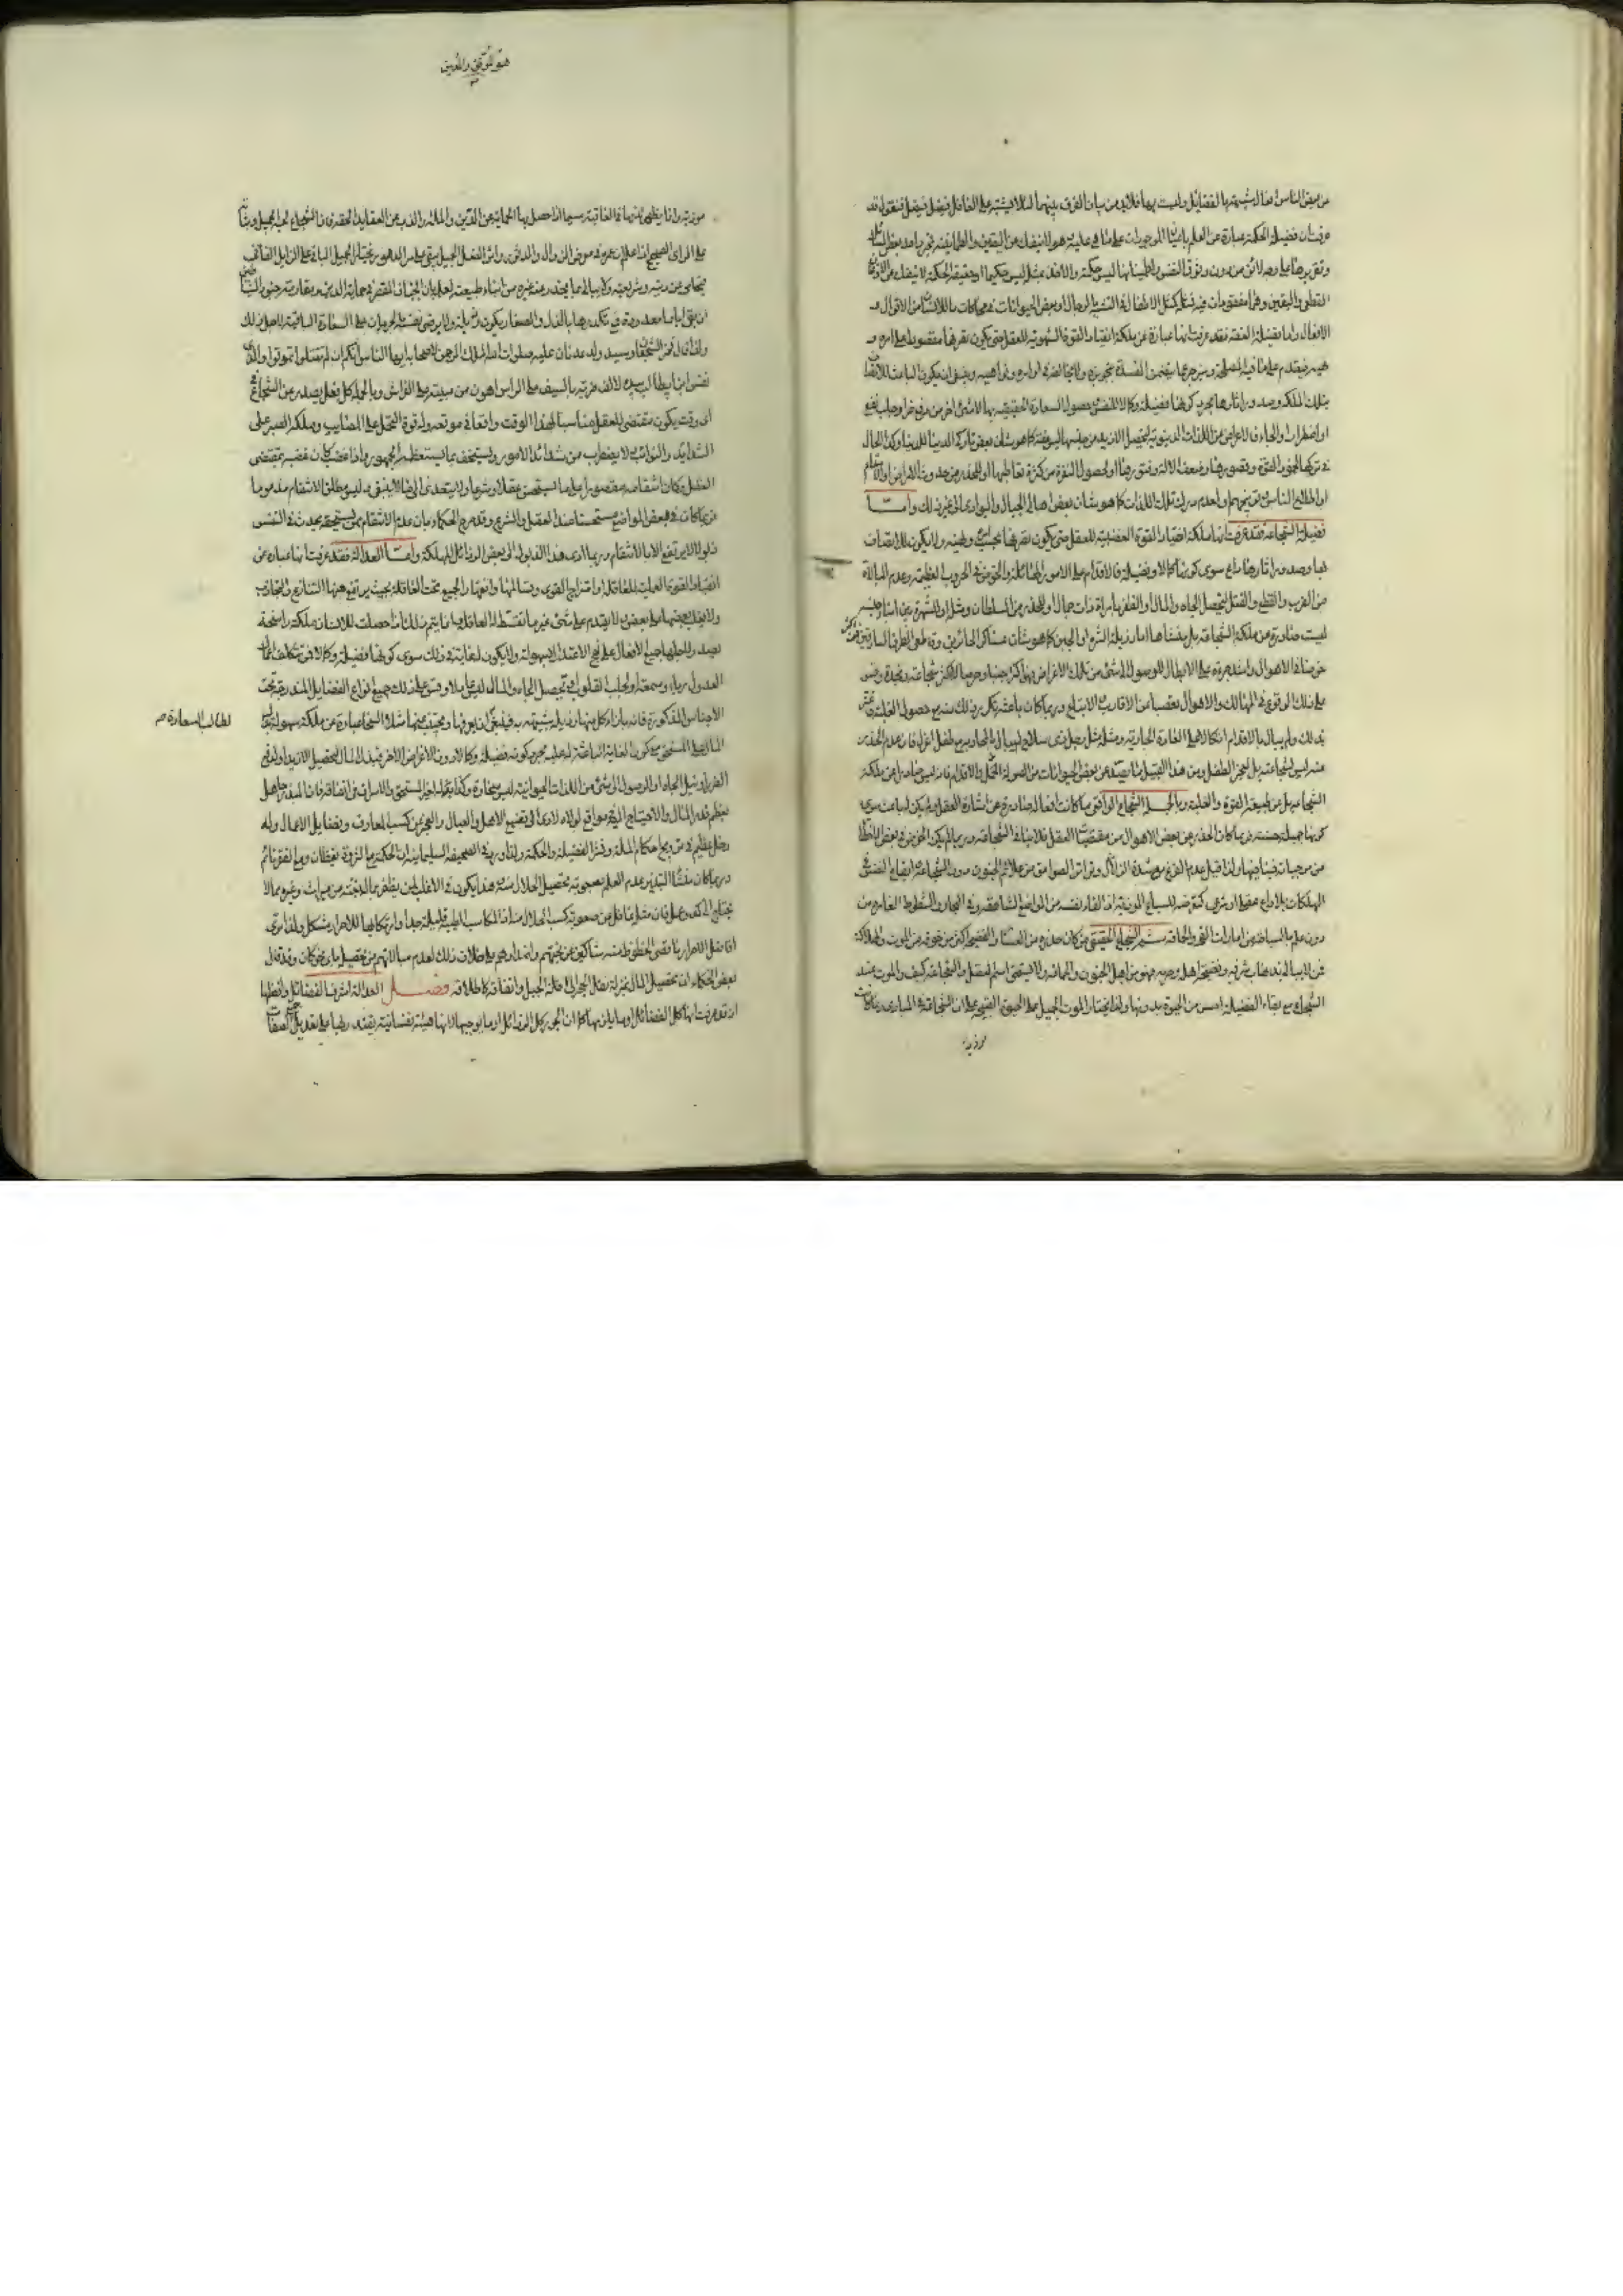 من بعض الناس افعال شبيهة بالفضائل وليست بها فلابد من بيان الفرق بينهما لئلا يشتبه على الغافل فيضل ويضل فنقول قد
عرفت ان فضيلة الحكمة عبارة عن العلم باعيان الموجودات على ما هي عليه وهو لا ينفك عن اليقين والطمأنينة فمجرد اخذ بعض المسائل
وتقريرها على وجه لائق من دون وثوق النفس واطمينانها ليس حكمة والاخذ بمثله ليس حكيما اذ حقيقة الحكمة لا تنفك عن الاذعان
القطعي واليقين وهما مفقودان فيه فمثله كمثل الاطفال في التشبه بالرجال او بعض الحيوانات في محاكات ما للانسان من الاقوال و
الافعال واما فضيلة العفة فقد عرفت انها عبارة عن ملكة انقياد القوة الشهوية للعقل حتى يكون تصرفها مقصورا على امره و
نهيه فيقدم على ما فيه المصلحة وينزجر عما يتضمن المفسدة بتجويزه ولا يخالفه في اوامره ونواهيه وينبغي ان يكون الباعث للاتصاف
بتلك الملكة وصدور اثارها مجرد كونها فضيلة وكمالا للنفس وحصول السعادة الحقيقية بها لا شئ اخر من دفع ضر او جلب نفع
او اضطرار والجاء فالاعراض عن اللذات الدنيوية لتحصيل الازيد من جنسها ليس عفة كما هو شأن بعض تاركي الدنيا للدنيا وكذا الحال
في تركها لخمود القوة وقصورها وضعف الالة وفتورها او لحصول النفرة من كثرة تعاطيها او للحذر من حدوث الامراض والاسقام
او اطلاع الناس وتوبيخهم او لعدم درك تلك اللذات كما هو شأن بعض اهالي الجبال والبوادي الى غير ذلك واما
فضيلة الشجاعة فقد عرفت انها ملكة انقياد القوة الغضبية للعقل حتى يكون تصرفها بحسب امره ونهيه ولا يكون للاتصاف
بها وصدور اثارها داع سوى كونها كمالا وفضيلة فالاقدام على الامور الهائلة والخوض في الحروب العظيمة وعدم المبالاة
من الضرب والقطع والقتل لتحصيل الجاه والمال او الظفر بامراة ذات جمال او للحذر من السلطان ومثله او للشهرة بين ابناء جنسه
ليست صادرة من ملكة الشجاعة بل منشأها اما رذيلة الشره او الجبن كما هو شأن عساكر الجائرين وقاطعي الطرق والسارقين فمن كان اكثر
خوضا في الاهوال واشد جرءة على الابطال للوصول الى شئ من تلك الاغراض فهو اكثر جبنا وحرصا لا اكثر شجاعة ونجدة وقس
على ذلك الوقوع في المهالك والاهوال تعصبا عن الاقارب والاتباع وربما كان باعثه تكرر ذلك منه مع حصول الغلبة فاغتر
بذلك ولم يبال بالاقدام اتكالا على العادة الجارية ومثله مثل رجل ذي سلاح لم يبال بالمحاربة مع طفل اعزل فان عدم الحذر
عنه ليس لشجاعته بل لعجز الطفل ومن هذا القبيل ما يصدر عن بعض الحيوانات من الصولة والاقدام فانه ليس صادرا عن ملكة
الشجاعة بل عن طبيعة القوة والغلبة وبالجملة الشجاع الواقعي ما كانت افعاله صادرة عن اشارة العقل ولم يكن لها باعث سوى
كونها جميلة حسنة فربما كان الحذر عن بعض الاهوال من مقتضيات العقل فلا ينافي الشجاعة وربما لم يكن الخوض في بعض الاخطار
من موجباته فينافيها ولذا قيل عدم الفزع مع شدة الزلازل وتواتر الصواعق من علائم الجنون دون الشجاعة وايقاع النفس في
الهلكات بلا داع عقلي او شرعي كتعرضه للسباع الموذية او القاء نفسه من المواضع الشاهقة او في البحار والشطوط الغامرة من
دون علم بالسباحة من امارات القحة والحماقة ثم الشجاع الحقيقي من كان حذره من العار والفضيحة اكثر من خوفه من الموت والهلاكة
فمن لا يبالي بذهاب شرفه وفضيحة اهله وحرمه فهو من اهل الجنون والحماقة ولا يستحق اسم العقل والشجاعة كيف والموت عند
الشجاع مع بقاء الفضيلة احسن من الحيوة بدونها ولذا يختار الموت الجميل على الحيوة القبيحة على ان الشجاعة في المبادي ربما كانت
موذية
هو الموفق والمعين
موذية وانما يظهر لذتها في العاقبة سيما اذا حصل بها الحماية عن الدين والملة والذب عن العقائد الحقة فان الشجاع لحبه الجميل وثباته
على الراي الصحيح اذا علم ان عمره في معرض الزوال والدثور واثر الفعل الجميل يبقى على مر الدهور يختار الجميل الباقي على الرذيل الفاني
فيحامي عن دينه وشريعته ولا يبالي بما يحذر عنه غيره من ابناء طبيعته لعلمه بان الجبان المقصر في حماية الدين ومقاومة جنود الشياطين
ان بقي اياما معدودة فمع تكدرها بالذل والصغار يكون زايلة ولا يرضى نفسه بالحرمان عن السعادة الباقية لاجل ذلك
ولذا قال فخر الشجعان وسيد ولد عدنان عليه صلوات الله الملك الرحمن لاصحابه ايها الناس انكم ان لم تقتلوا تموتوا والذي
نفس ابن ابي طالب بيده لالف ضربة بالسيف على الراس اهون من ميتة على الفراش وبالجملة كل فعل يصدر عن الشجاع في
اي وقت يكون مقتضى للعقل مناسبا لهذا الوقت واقعا في موقعه وله قوة التحمل على المصائب وملكة الصبر على
الشدايد والنوائب لا يضطرب من شدائد الامور ويستخف بما يستعظمه الجمهور واذا غضب كان غضبه بمقتضى
العقل وكان انتقامه مقصورا على ما يستحسن عقلا وشرعا ولا يتعدى الى ما لا ينبغي وليس مطلق الانتقام مذموما
فربما كان في بعض المواضع مستحسنا عند العقل والشرع وقد صرح الحكماء بان عدم الانتقام ممن يستحقه يحدث في النفس
ذبولا لا يرتفع الا بالانتقام وربما ادى هذا الذبول الى بعض الرذائل المهلكة واما العدالة فقد عرفت انها عبارة عن
انقياد القوة العملية للعاقلة او امتزاج القوى وتسالمها وانقهار الجميع تحت العاقلة بحيث يرتفع بينها التنازع والتجاذب
ولا يغلب بعضها على بعض ولا يقدم على شئ غير ما تقسط له العاقلة وانما يتم ذلك اذا حصلت للانسان ملكة راسخة
يصدر لاجلها جميع الافعال على نهج الاعتدال بسهولة ولا يكون له غاية في ذلك سوى كونها فضيلة وكمالا فمن يتكلف اعمال
العدول رياء وسمعة او لجلب القلوب او تحصيل الجاه والمال ليس عادلا وقس على ذلك جميع انواع الفضايل المندرجة تحت
الاجناس المذكورة فانه بازاء كل منها رذيلة شبيهة به فينبغي ان يعرفها ويجتنب عنها مثلا السخاء عبارة عن ملكة سهولة بذل
لطالب السعادة صح
المال على المستحق مع كون الغاية الباعثة له عليه مجرد كونه فضيلة وكمالا دون الاغراض الاخر فبذل المال لتحصيل الازيد او لدفع
الضرر او نيل الجاه او للوصول الى شئ من اللذات الحيوانية ليس سخاوة وكذا بذله لغير المستحق والاسراف في انفاقه فان المبذر جاهل
بعظم قدر المال والاحتياج اليه في مواقع لولاه لادى الى تضييع الاهل والعيال والعجز عن كسب المعارف وفضايل الاعمال وله
دخل عظيم في ترويج احكام الملة ونشر الفضيلة والحكمة ولذا ورد في الصحيفة السليمانية ان الحكمة مع الثروة يقظان ومع الفقر نائم
وربما كان منشأ التبذير عدم العلم بصعوبة تحصيل الحلال منه وهذا يكون في الاغلب لمن يظفر بمال بغتة من ميراث وغيره مما لا
يحتاج الى كد وعمل فان مثله غافل عن صعوبة كسب الحلال منه اذ المكاسب الطيبة قليلة جدا وارتكابها للاحرار مشكل ولذا ترى
افاضل الاحرار ناقصي الحظوظ منه شاكين عن بختهم واضدادهم على خلاف ذلك لعدم مبالاتهم من تحصيله باي نحو كان وقد قال
بعض الحكماء ان تحصيل المال بمنزلة نقل الحجر الى قلة الجبل وانفاقه كاطلاقه فصل العدالة اشرف الفضائل وافضلها
اذ قد عرفت انها كل الفضائل او ما يلزمها كما ان الجور كل الرذائل او ما يوجبها لانها هيئة نفسانية يقتدر بها على تعديل جميع الصفات